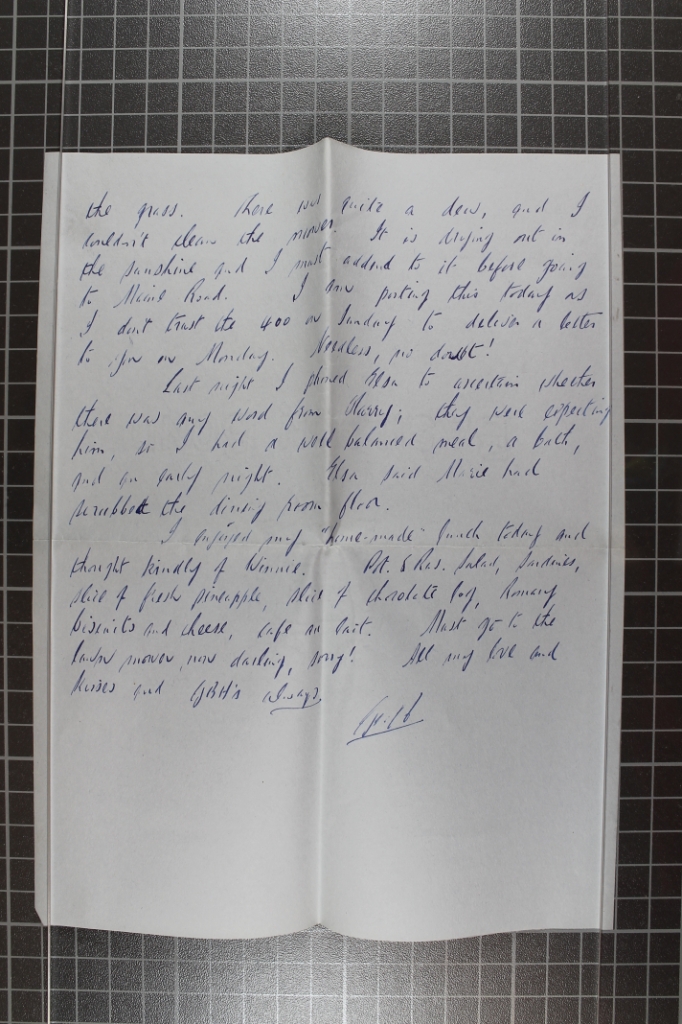 the grass. There was quite a dew, and I
couldn't clean the mower. It is drying out in
the sunshine and I must attend to it before going
to Marie Road. I am posting this today as
I don't trust the 400 on Sunday to deliver a letter
to you on Monday. Needless, no doubt!
Last night I phoned Elsa to ascertain whether
there was any word from Harry; they were expecting
him, so I had a well balanced meal, a bath,
and an early night. Elsa said Marie had
scrubbed the dining room floor.
I enjoyed my "home-made" lunch today and
thought kindly of Winnie. Pot. & Rus. Salad, Sardines,
slice of fresh pineapple, slice of chocolate log, Romany
biscuits and cheese, cafe au lait. Must go to the
lawn mower now darling, sorry! All my love and
kisses and GBH's always.